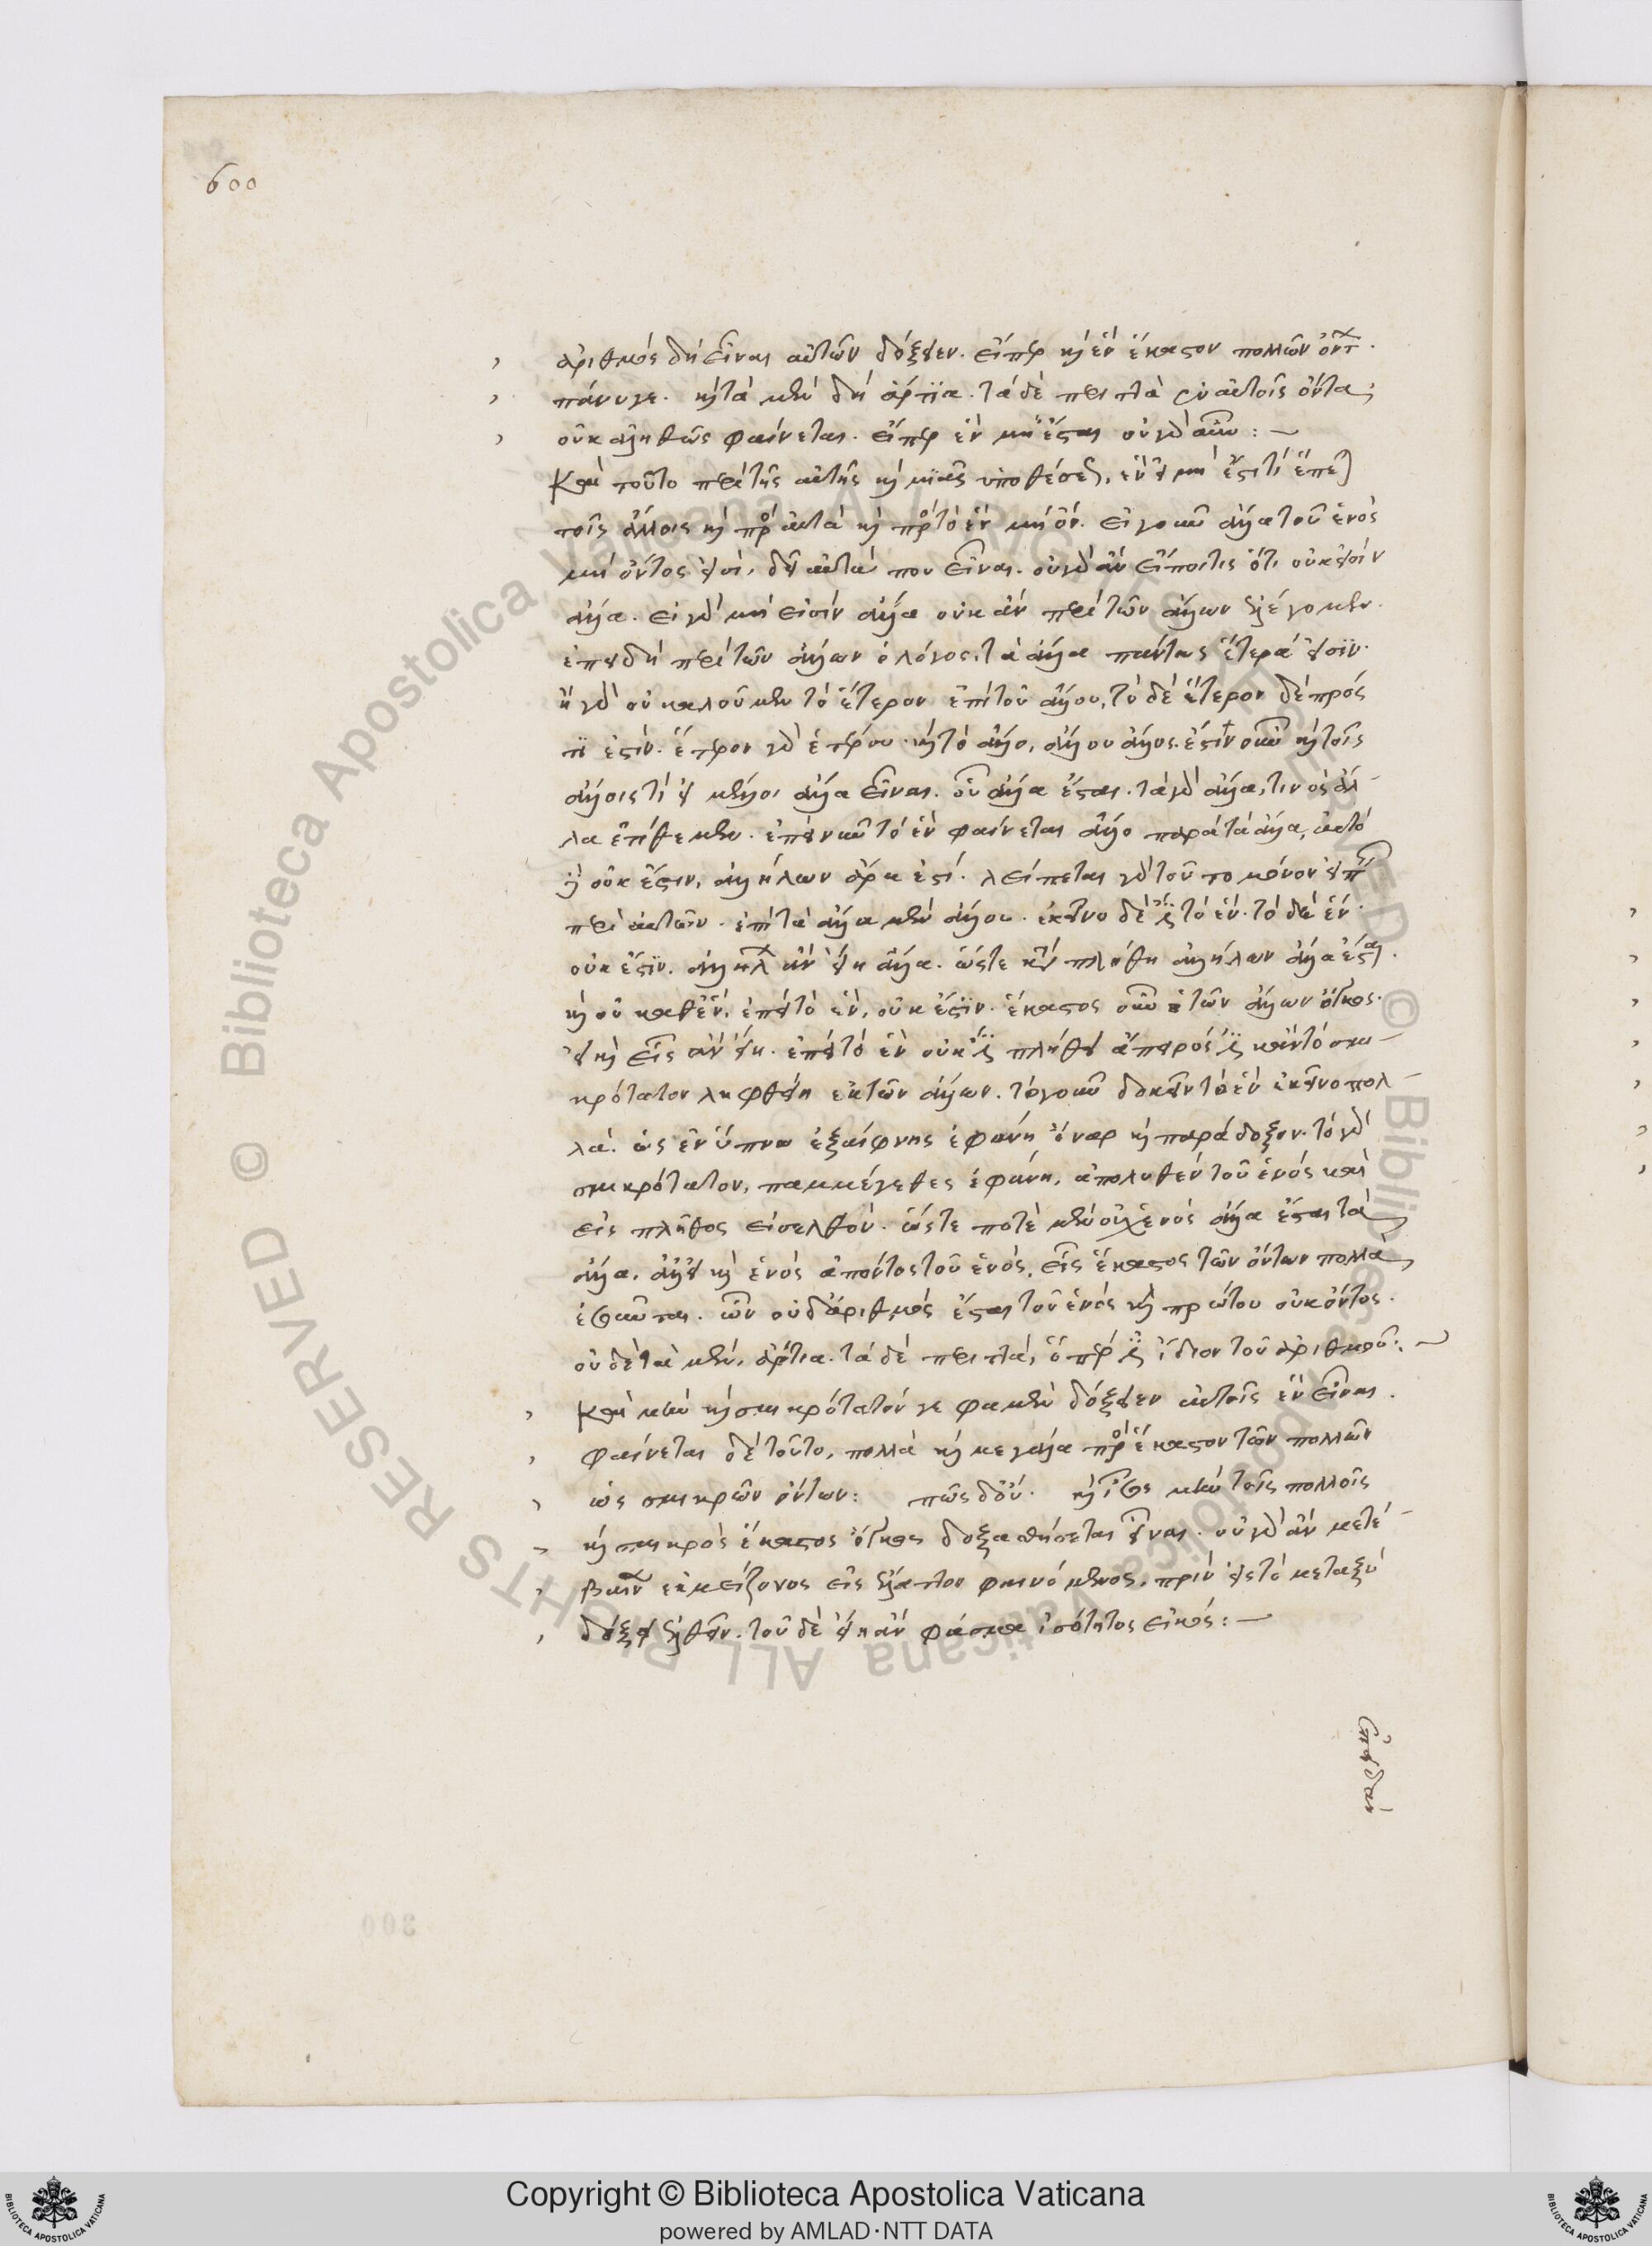 600
ἀριθμὸς δὴ εἶναι αὐτῶν δόξειεν. εἴπερ καὶ ἓν ἕκαστον πολλῶν ὄντων.
πάνυ γε. καὶ τὰ μὲν δὴ ἄρτια. τὰ δὲ περιττὰ ἐν αὐτοῖς ὄντα
οὐκ ἀληθῶς φαίνεται. εἴπερ ἓν μὴ ἔσται οὐ γὰρ οὖν :
Καὶ τοῦτο περὶ τῆς αὐτῆς καὶ μιᾶς ὑποθέσεως, ἓν εἰ μὴ ἔστι τί ἕπεται
τοῖς ἄλλοις καὶ πρὸς αὐτὰ καὶ πρὸς τὸ ἓν μὴ ὄν. εἰ γοῦν ἄλλα τοῦ ἑνὸς
μὴ ὄντος εἰσί, δεῖ αὐτά που εἶναι. οὐ γὰρ ἂν εἴποι τις ὅτι οὐκ εἰσὶν
ἄλλα. εἰ γὰρ μή εἰσιν ἄλλα οὐκ ἂν περὶ τῶν ἄλλων ἐλέγομεν.
ἐπειδὴ περὶ τῶν ἄλλων ὁ λόγος, τὰ ἄλλα πάντως ἕτερά εἰσιν.
ἢ γὰρ οὐ καλοῦμεν τὸ ἕτερον ἐπὶ τοῦ ἄλλου, τὸ δὲ ἕτερον δὲ πρός
τί ἐστιν. ἕτερον γὰρ ἑτέρου. καὶ τὸ ἄλλο, ἄλλου ἄλλος. ἔστιν οὖν καὶ τοῖς
ἄλλοις τί εἰ μέλλοι ἄλλα εἶναι. οὗ ἄλλα ἔσται. τὰ γὰρ ἄλλα, τινὸς ἄλ-
λα ἐπίθεμεν. ἐπεὶ οὖν τὸ ἓν φαίνεται ἄλλο παρὰ τὰ ἄλλα, αὐτὸ
δὲ οὐκ ἔστιν, ἀλλήλων ἄρα ἐστί. λείπεται γὰρ τοῦτο μόνον εἰπεῖν
περὶ αὐτῶν. ἐπεὶ τὰ ἄλλα μὲν ἄλλου. ἐκεῖνο δέ ἐστι τὸ ἕν. τὸ δὲ ἓν
οὐκ ἔστιν. ἀλλήλων ἂν εἴη ἄλλα. ὥστε κατὰ πλήθη ἀλλήλων ἄλλα ἔσται.
καὶ οὐ καθ' ἕν. ἐπεὶ τὸ ἕν, οὐκ ἔστιν. ἕκαστος οὖν τῶν ἄλλων ὄγκος.
εἰ καὶ εἷς ἂν εἴη. ἐπεὶ τὸ ἓν οὐκ ἔστι πλήθει ἄπειρός ἐστι κἂν τὸ σμι-
κρότατον ληφθείη ἐκ τῶν ἄλλων. τὸ γοῦν δοκεῖν τὸ ἓν ἐκεῖνο πολ-
λά. ὡς ἐν ὕπνῳ ἐξαίφνης ἐφάνη ὄναρ καὶ παράδοξον. τὸ γὰρ
σμικρότατον, παμμέγεθες ἐφάνη, ἀπολυθὲν τοῦ ἑνὸς καὶ
εἰς πλῆθος εἰσελθόν. ὥστε ποτὲ μὲν οὐχ ἑνὸς ἄλλα ἔσται τὰ
ἄλλα. ἀλλ' εἰ καὶ ἑνὸς ἀπόντος τοῦ ἑνὸς, εἷς ἕκαστος τῶν ὄντων πολλὰ
ὀφθήσεται. ὧν οὐδ' ἀριθμὸς ἔσται τοῦ ἑνὸς καὶ πρώτου οὐκ ὄντος.
οὐδὲ τὰ μὲν, ἄρτια. τὰ δὲ περιττά, ὅπερ ἐστὶ ἴδιον τοῦ ἀριθμοῦ :
Καὶ μὴν καὶ σμικρότατόν γε φαμὲν δόξειεν αὐτοῖς ἐν εἶναι.
φαίνεται δὲ τοῦτο, πολλὰ καὶ μεγάλα πρὸς ἕκαστον τῶν πολλῶν
ὡς σμικρῶν ὄντων : πῶς δ' οὔ. καὶ ἴσος μὲν τοῖς πολλοῖς
καὶ σμικροῖς ἕκαστος ὄγκος δοξασθήσεται εἶναι. οὐ γὰρ ἂν μετέ-
βαινεν ἐκ μείζονος εἰς ἔλαττον φαινόμενος, πρὶν εἰς τὸ μεταξὺ
δόξειεν ἐλθεῖν. τοῦ δὲ εἴη ἂν φάσμα ἰσότητος εἰκός :
ἐπειδὰν
300
Copyright © Biblioteca Apostolica Vaticana
powered by AMLAD·NTT DATA